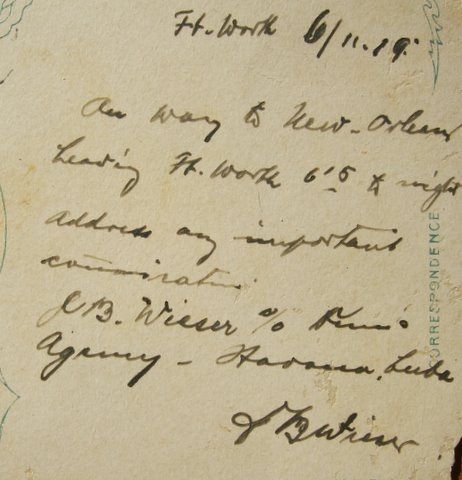 Ft. Worth 6/11.19.
On way to New-Orleans
Leaving Ft. Worth 6'5 to night
Address any important
J B. Wieser c/o
Agency - Havana, Cuba
J B Wieser
CORRESPONDENCE